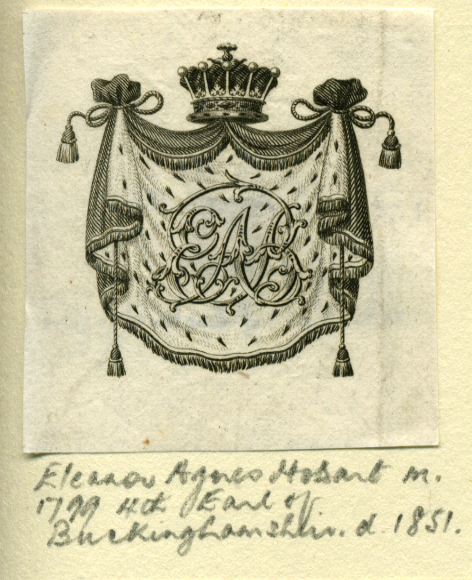 EAB
Eleanor Agnes Hobart m.
1799 4th Earl of
Buckinghamshire. d. 1851.